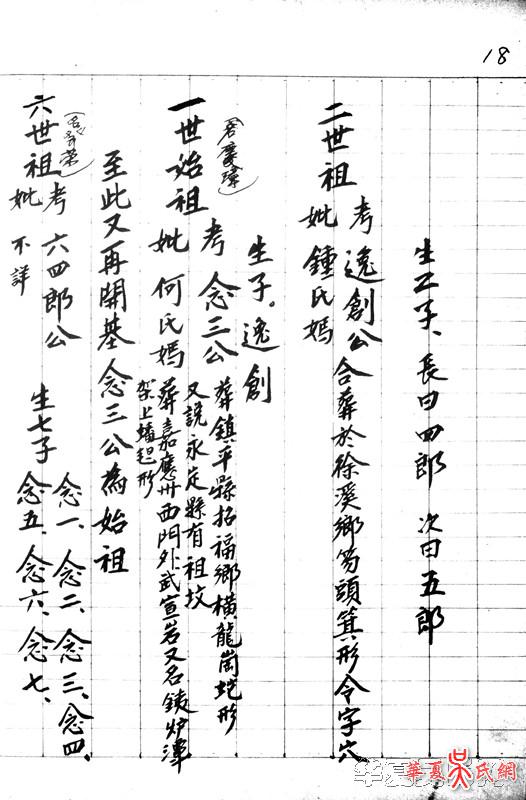 18
六世祖
(名哥榮)
考 六四郎公
妣 不詳
生七子
念一、念二、念三、念四、
念五、念六、念七、
至此又再開基念三公為始祖
一世始祖
考 念三公
妣 何氏媽
葬鎮平縣招福鄉橫龍崗蛇形
又說永定縣有祖坟
葬嘉應州西門外武宣岩又名錢炉潭
架上蟠起形
生子。逸創
二世祖
考 逸創公
妣 鍾氏媽
合葬於徐溪鄉笏頭箕形令字穴
生二子、長曰四郎 次曰五郎
華夏吳氏網